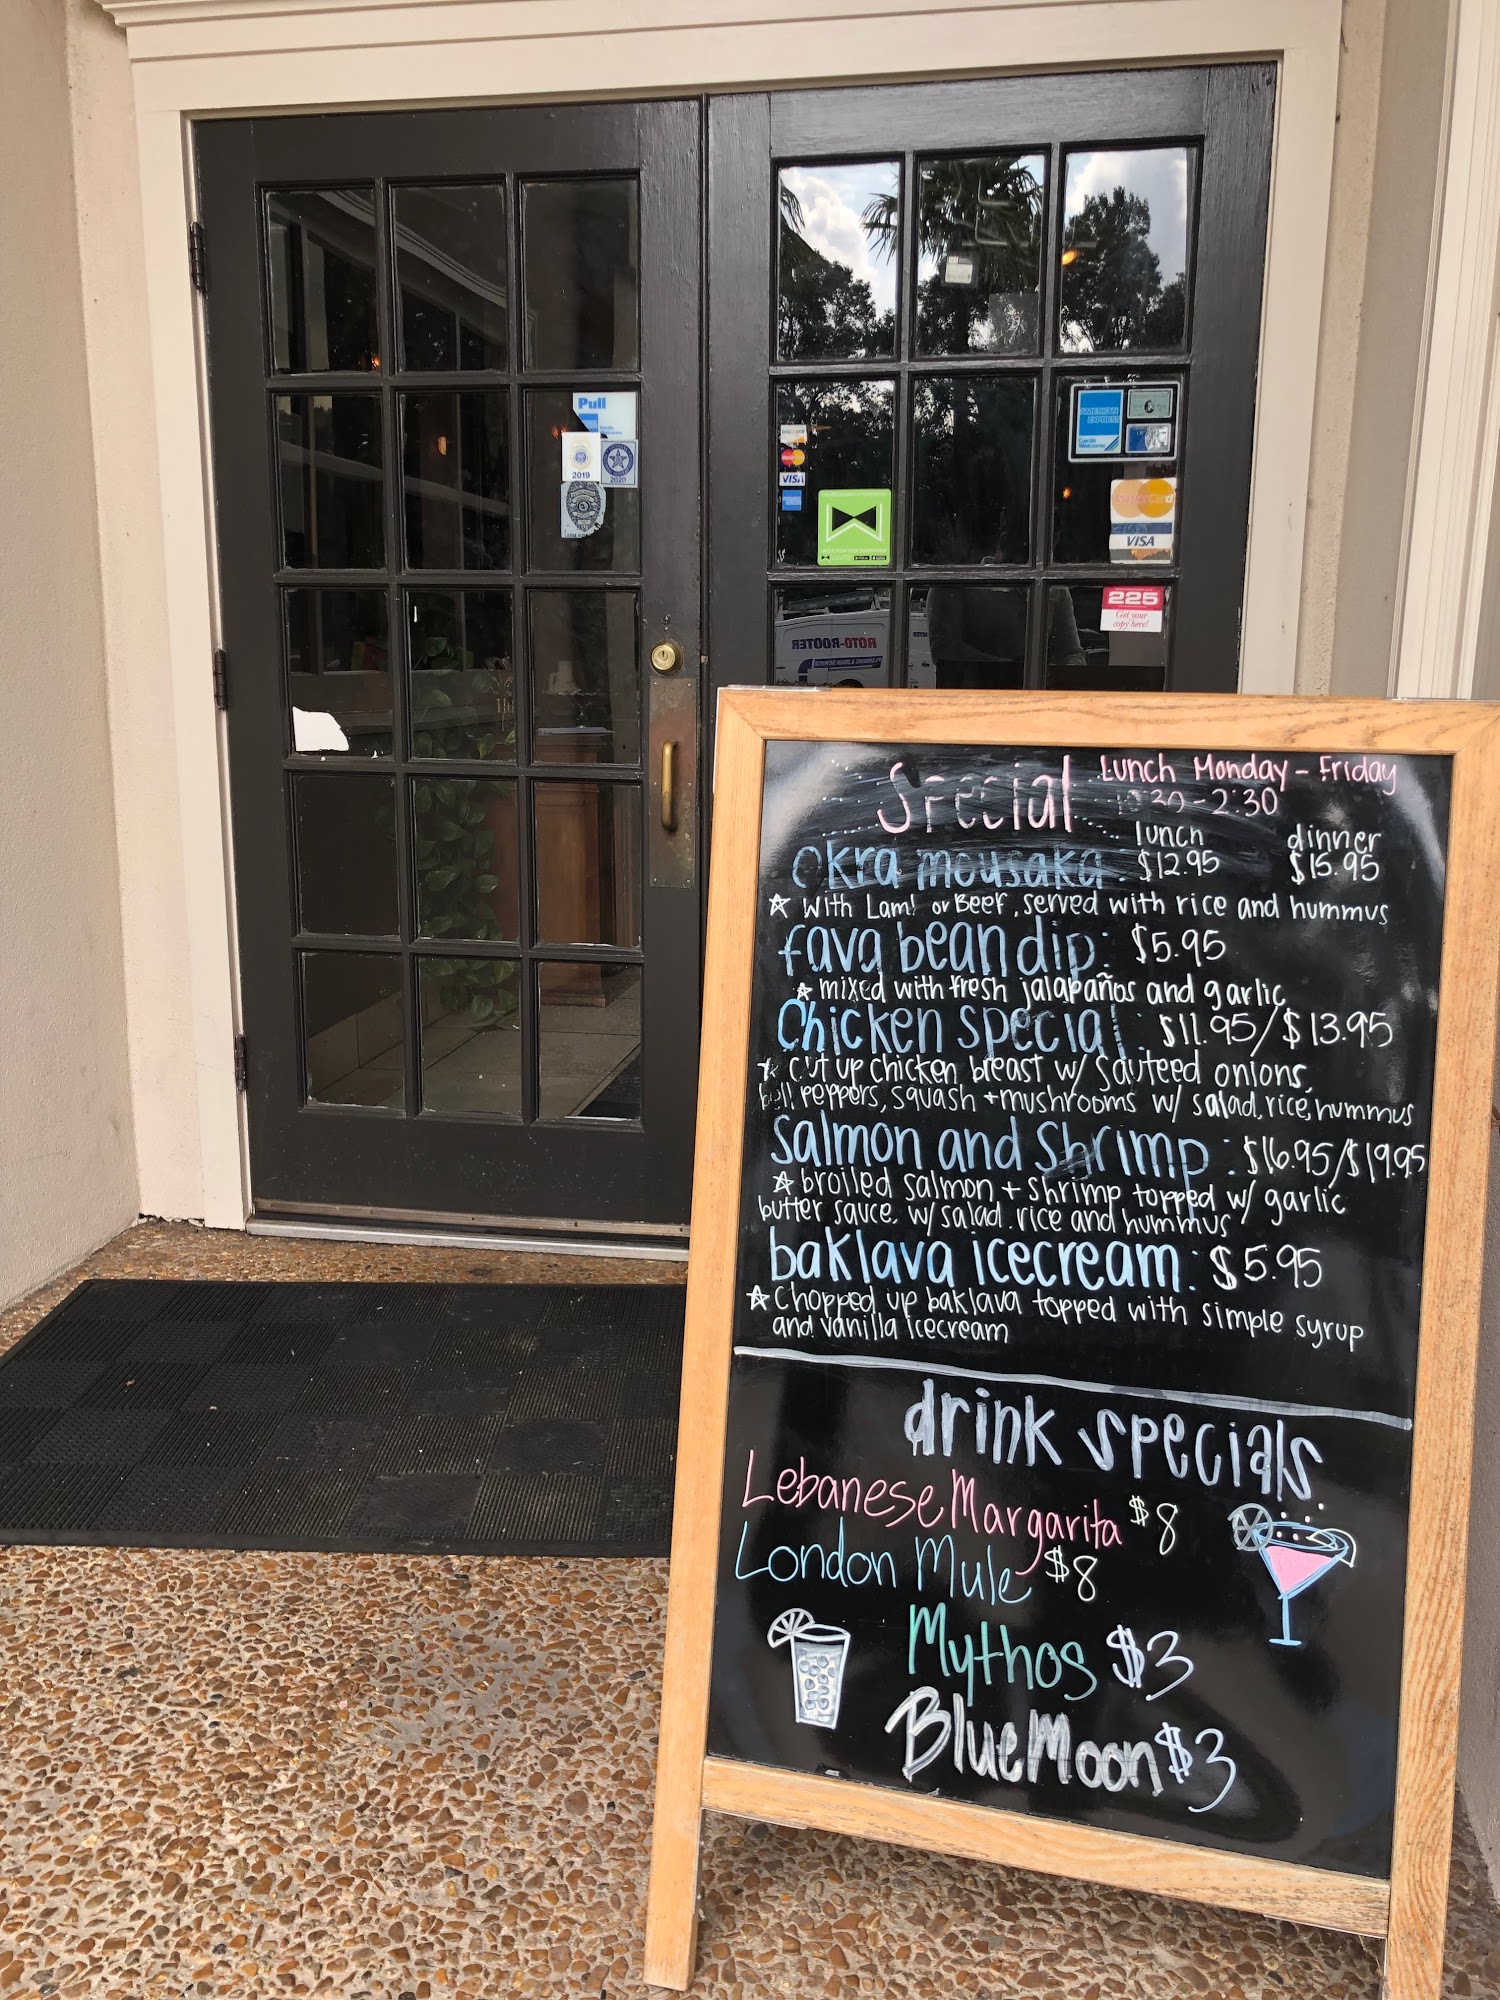 Pull
Cards
Welcome
2019
2020
DISCOVER
MasterCard
VISA
AMERICAN
EXPRESS
Cards
Welcome
MasterCard
VISA
225
Get your
copy here!
ROTO-ROOTER
Special Lunch Monday - Friday
- 2:30
lunch dinner
Okra mousaka: $12.95 $15.95
☆ With Lamb or Beef, served with rice and hummus
fava bean dip: $5.95
☆ mixed with fresh jalapaños and garlic
Chicken Special: $11.95/$13.95
☆ cut up chicken breast w/ sauteed onions,
bell peppers, squash + mushrooms w/ salad, rice, hummus
Salmon and Shrimp: $16.95/$19.95
☆ broiled salmon + shrimp topped w/ garlic
butter sauce. w/ salad, rice and hummus
baklava icecream: $5.95
☆ Chopped up baklava topped with simple syrup
and vanilla icecream
drink specials
Lebanese Margarita $8
London Mule $8
Mythos $3
Blue Moon $3